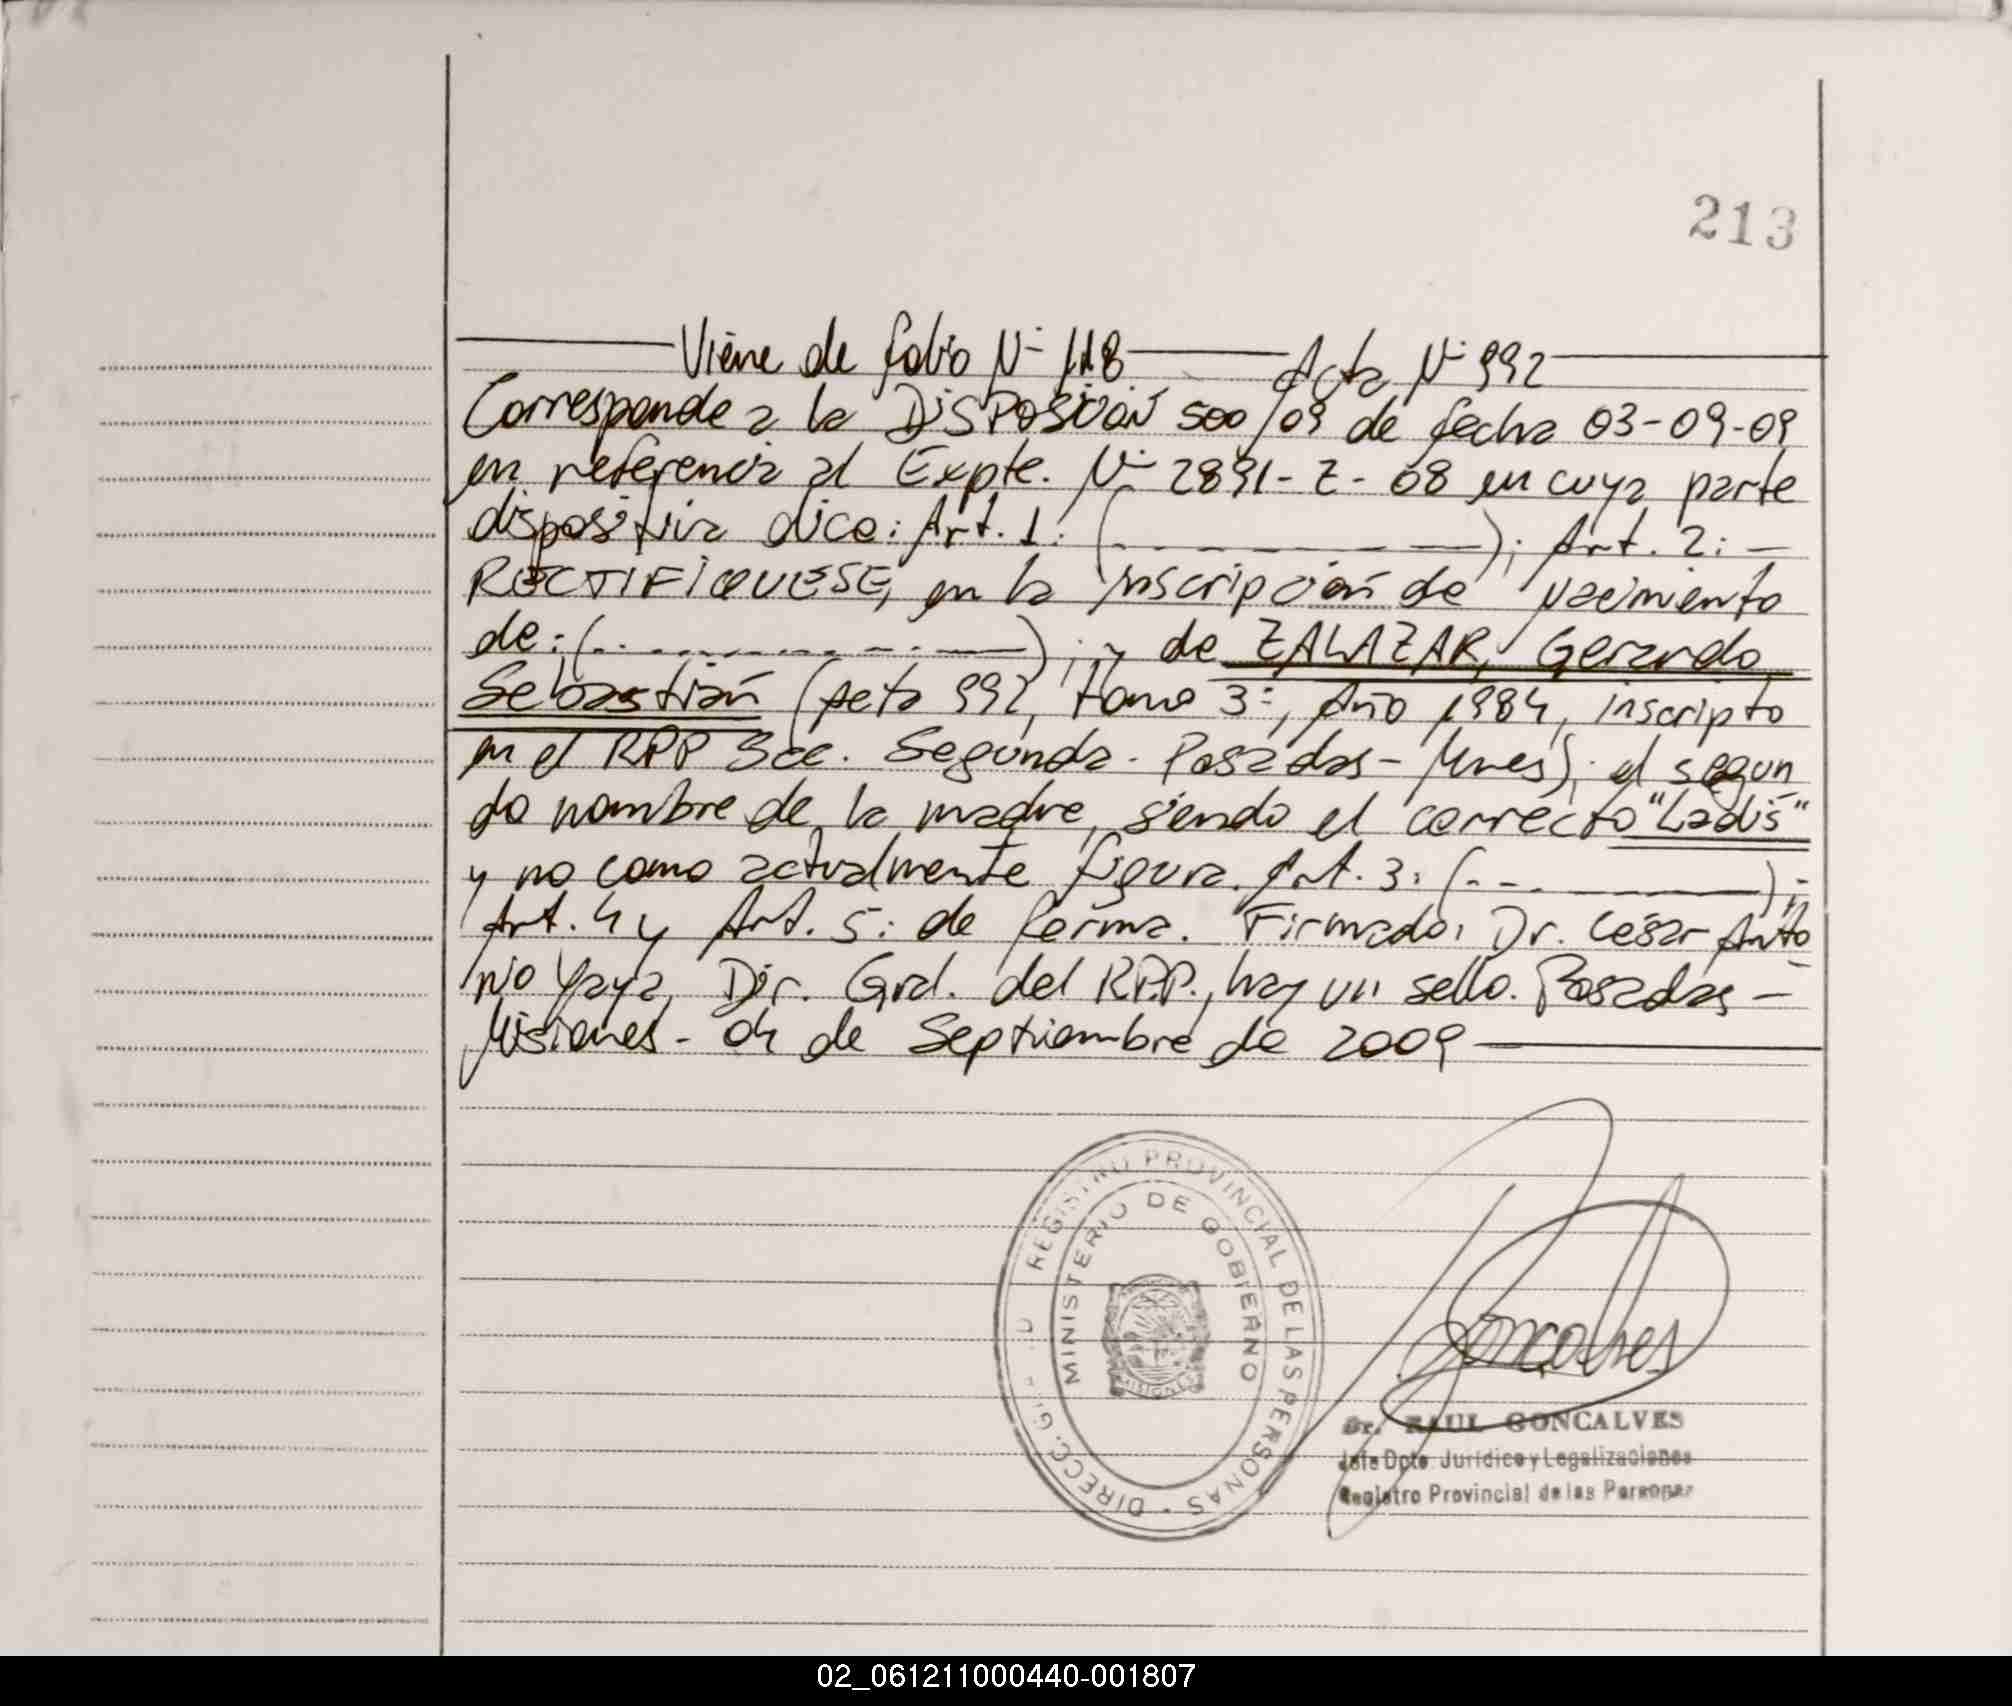 213
Viene de folio Nº 118 Acta Nº 992
Corresponde a la DISPOSICIÓN 500/09 de fecha 03-09-09
en referencia al Expte. Nº 2891-Z-08 en cuya parte
dispositiva dice: Art. 1: (----------); Art. 2: —
RECTIFIQUESE, en la inscripción de nacimiento
de: (----------); y de ZALAZAR, Gerardo
Sebastián (Acta 992, tomo 3º, Año 1984, inscripto
en el RPP Scc. Segunda - Posadas - Mnes); el segun
do nombre de la madre, siendo el correcto "Ladis"
y no como actualmente figura. Art. 3: (----------);
Art. 4 y Art. 5: de forma. Firmado: Dr. César Anto
nio Yaya, Dir. Gral. del R.P.P., hay un sello. Posadas -
Misiones - 04 de Septiembre de 2009
REGISTRO PROVINCIAL DE LAS PERSONAS - DIRECC. G
MINISTERIO DE GOBIERNO
MISIONES
Goncalves
Dr. RAUL GONCALVES
Jefe Dpto. Jurídico y Legalizaciones
Registro Provincial de las Personas
02_061211000440-001807